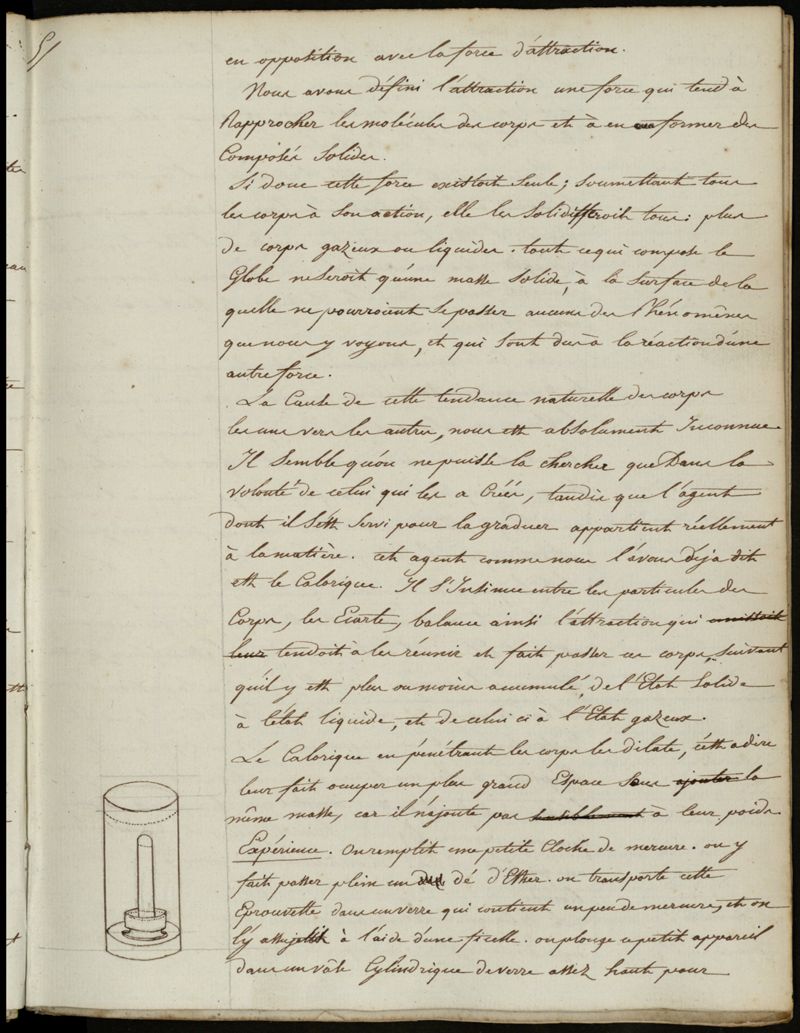 5/
en opposition avec la force d'attraction.
Nous avons défini l'attraction une force qui tend à
Rapprocher les molécules des corps et à en former des
Composés Solides.
Si donc cette force existoit Seule; Soumettant tous
les corps à Son action, elle les Solidifieroit tous: plus
de corps gazeux ou liquides. tout ce qui compose le
Globe ne Seroit qu'une masse Solide, à la Surface de la
quelle ne pourroient Se passer aucuns des Phénomènes
que nous y voyons, et qui Sont dus à la réaction d'une
autre force.
La Cause de cette tendance naturelle des corps
les uns vers les autres, nous est absolument Inconnue.
Il Semble qu'on ne puisse la chercher que Dans la
volonté de celui qui les a Créés, tandis que l'agent
dont il S'est Servi pour la graduer appartient réellement
à la matière. cet agent comme nous l'avons Déja dit
est le Calorique. Il S'Insinue entre les particules des
Corps, les Ecarte, balance ainsi l'attraction qui
leur tendoit à les réunir et fait passer ces corps, Suivant
qu'il y est plus ou moins accumulé, de l'Etat Solide
à l'état liquide, et de celui ci à l'Etat gazeux.
Le Calorique en pénétrant les corps les dilate, c'est a dire
leur fait occuper un plus grand Espace Sous ajouter la
même masse, car il n'ajoute pas sensiblement à leur poids.
Expérience. On remplit une petite Cloche de mercure. on y
fait passer plein un dé d'Ether. on transporte cette
Eprouvette dans un verre qui contient un peu de mercure, et on
l'y assujetit à l'aide d'une ficelle. on plonge ce petit appareil
dans un vâse Cylindrique de verre assez haut pour